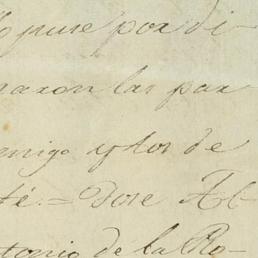 puse por di-
maron las par
migo y los de
té = Dose Ab
tonio de la Ro-